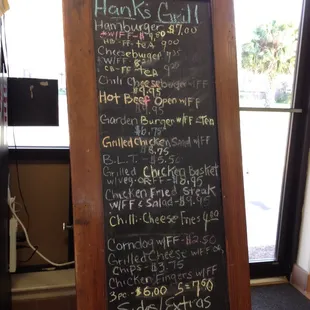 Hank's Grill
Hamburger $7.00
w/FF
FF tea
Cheeseburger
w/FF
FF tea
Chili Cheeseburger w/FF
$9.95
Hot Beef Open w/FF
$9.95
Garden Burger w/FF + Tea
$6.75
Grilled Chicken Salad w/FF
$8.75
B.L.T. - $5.50
Grilled Chicken basket
w/veg or FF - $8.95
Chicken Fried Steak
w/FF & Salad - $9.95
Chili Cheese Fries 4.00
Corndog w/FF - $3.50
Grilled Cheese w/FF
chips - $3.75
Chicken Fingers w/FF
3pc - $6.00 5 = 7.50
Sides/Extras